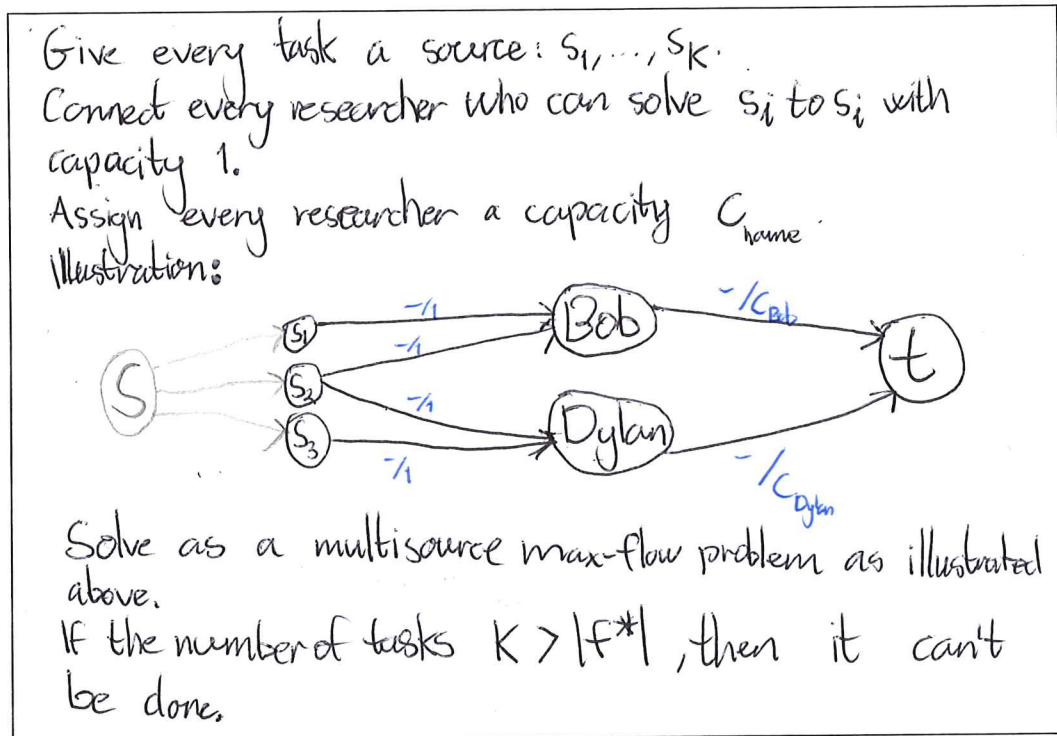 Give every task a source: s₁, ..., s_K.
Connect every researcher who can solve s_i to s_i with
capacity 1.
Assign every researcher a capacity C_name.
Illustration:
S
s₁
s₂
s₃
-/1
-/1
-/1
-/1
Bob
Dylan
-/C_Bob
-/C_Dylan
t
Solve as a multisource max-flow problem as illustrated
above.
If the number of tasks K > |f*|, then it can't
be done.